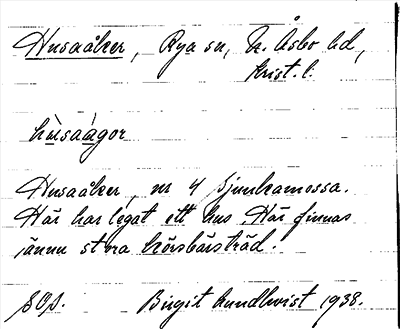 Husaåker, Rya sn, N. Åsbo hd,
Krist. l.
hùsaàgor
Husaåker, nr 4 Ljunhamossa.
Här har legat ett hus. Här finnas
ännu stora körsbärsträd.
SOJ. Birgit Lundkvist 1938.